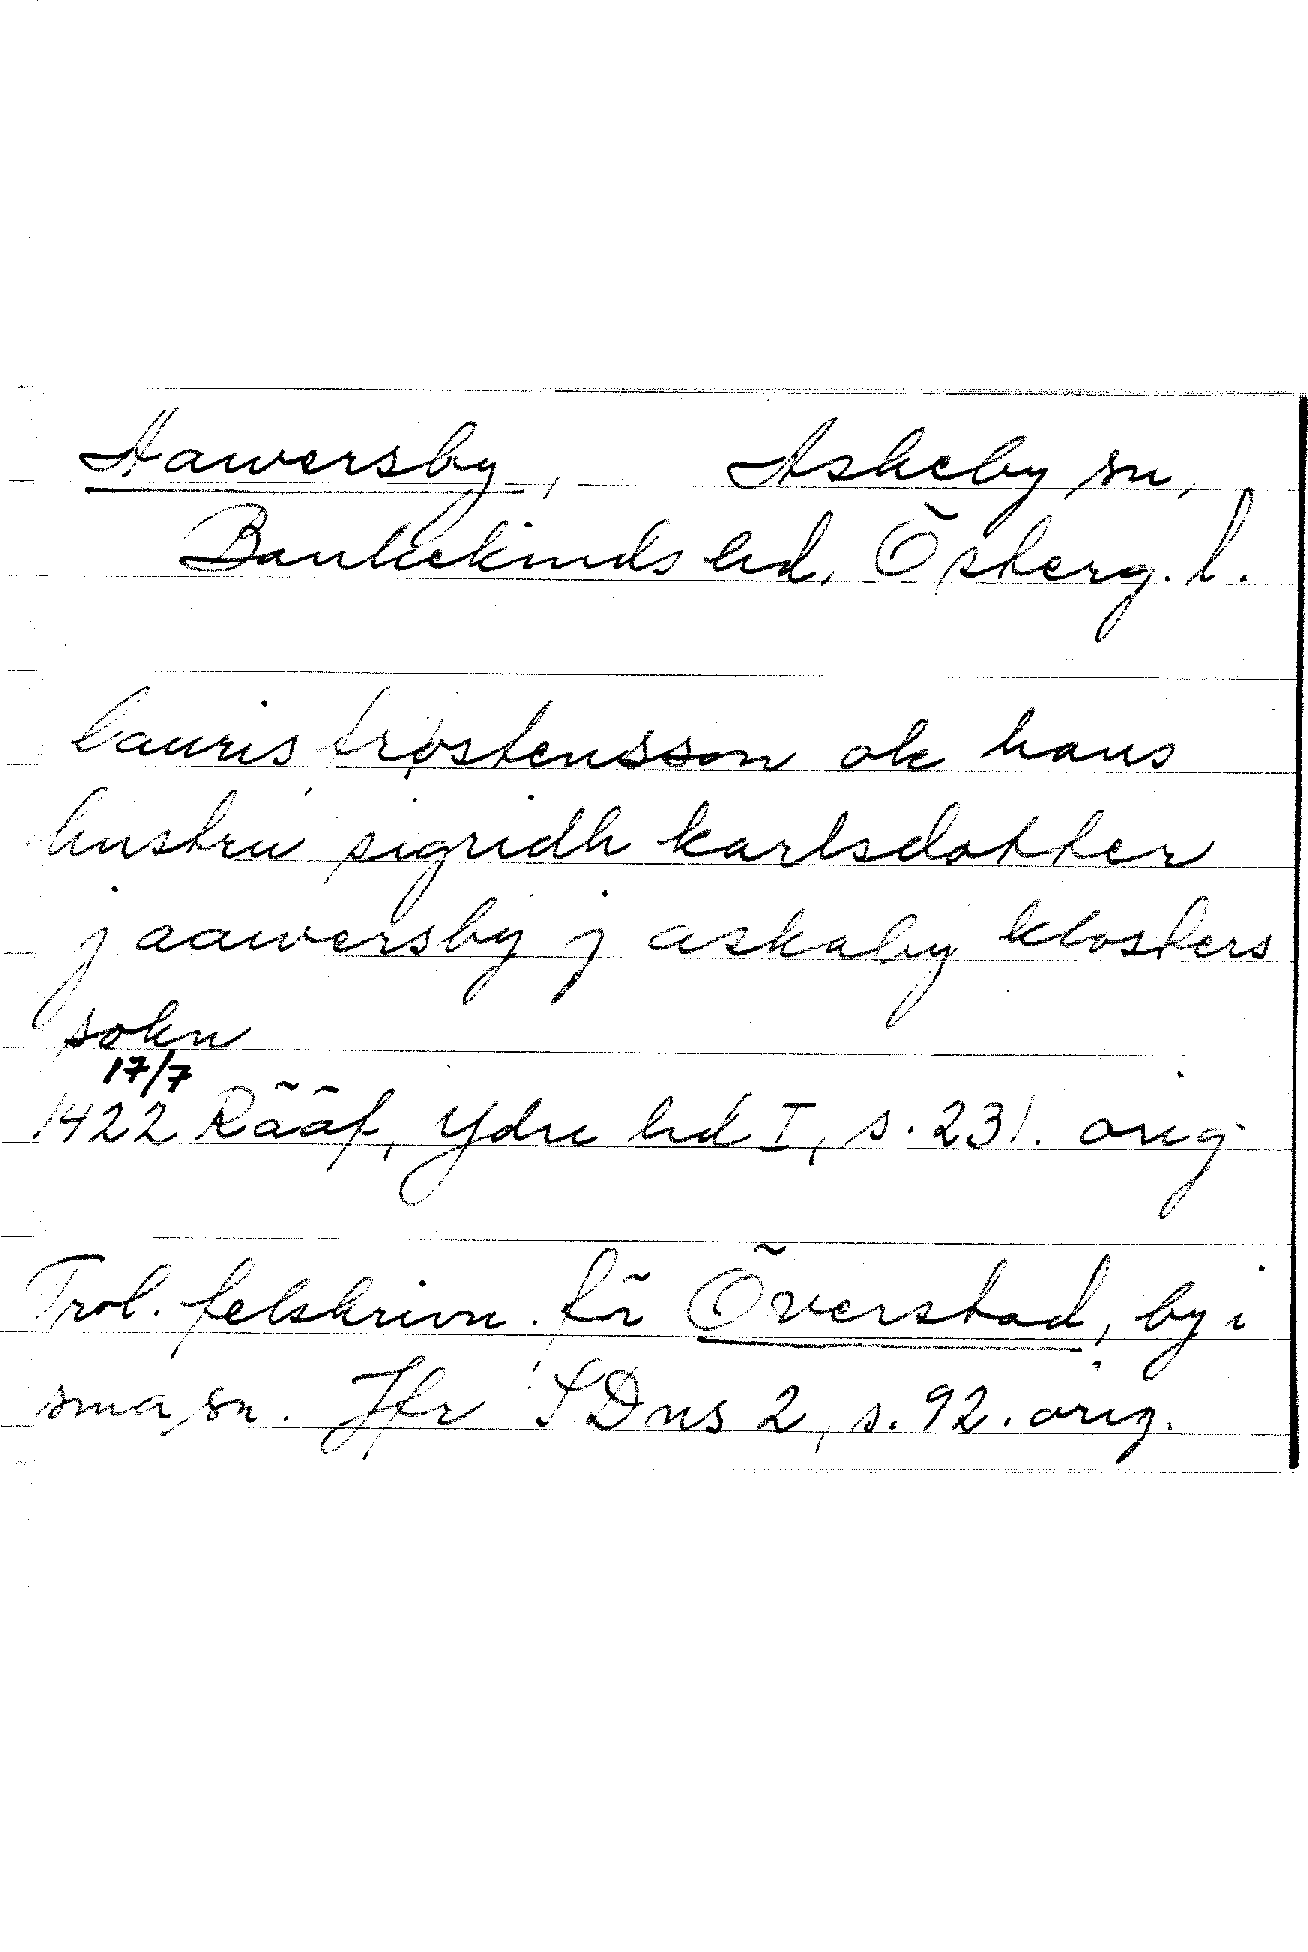 Aawersby, Askeby sn,
Bankekinds hd, Österg. l.
lauris trøstensson ok hans
hustru sigridh karlsdotter
j aawersby j askaby klosters
sokn
17/7
1422 Rääf, Ydre hd I, s. 231. orig
Trol. felskrivn. för Överstad, by i
sma sn. Jfr SDns 2, s. 92. orig.